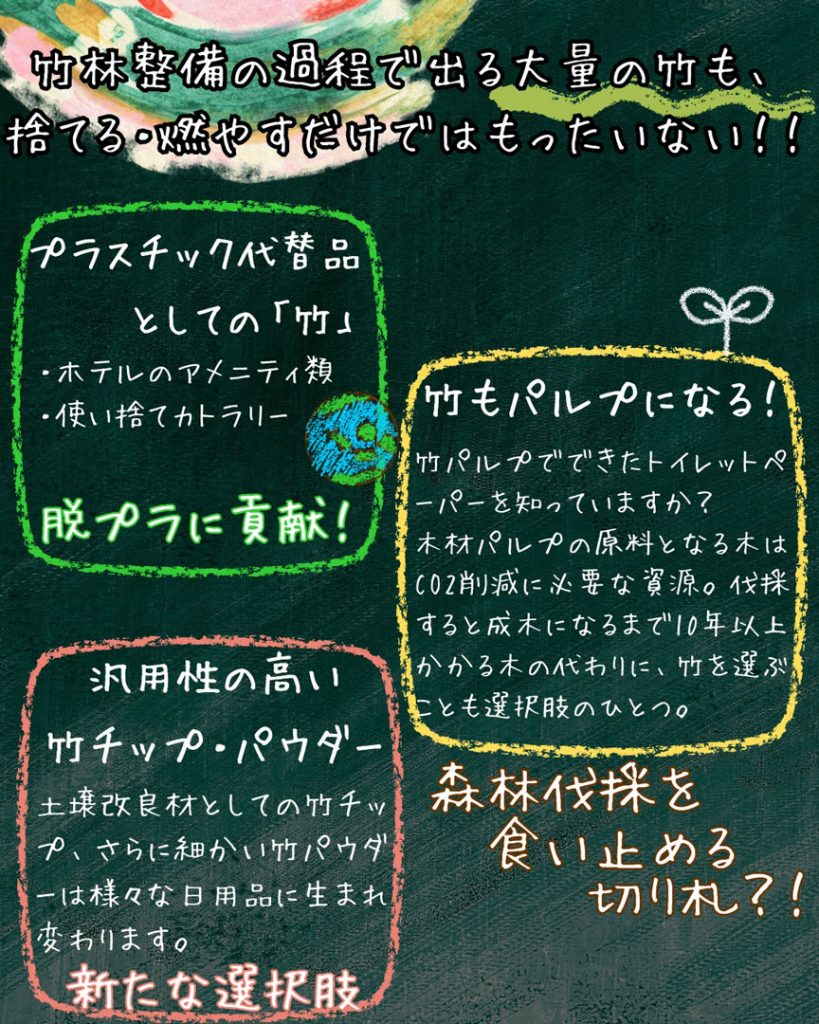 竹林整備の過程で出る大量の竹も、
捨てる・燃やすだけではもったいない!!
プラスチック代替品
としての「竹」
・ホテルのアメニティ類
・使い捨てカトラリー
脱プラに貢献!
竹もパルプになる!
竹パルプでできたトイレットペ
ーパーを知っていますか?
木材パルプの原料となる木は
CO2削減に必要な資源。伐採
すると成木になるまで10年以上
かかる木の代わりに、竹を選ぶ
ことも選択肢のひとつ。
森林伐採を
食い止める
切り札?!
汎用性の高い
竹チップ・パウダー
土壌改良材としての竹チッ
プ、さらに細かい竹パウダ
ーは様々な日用品に生まれ
変わります。
新たな選択肢